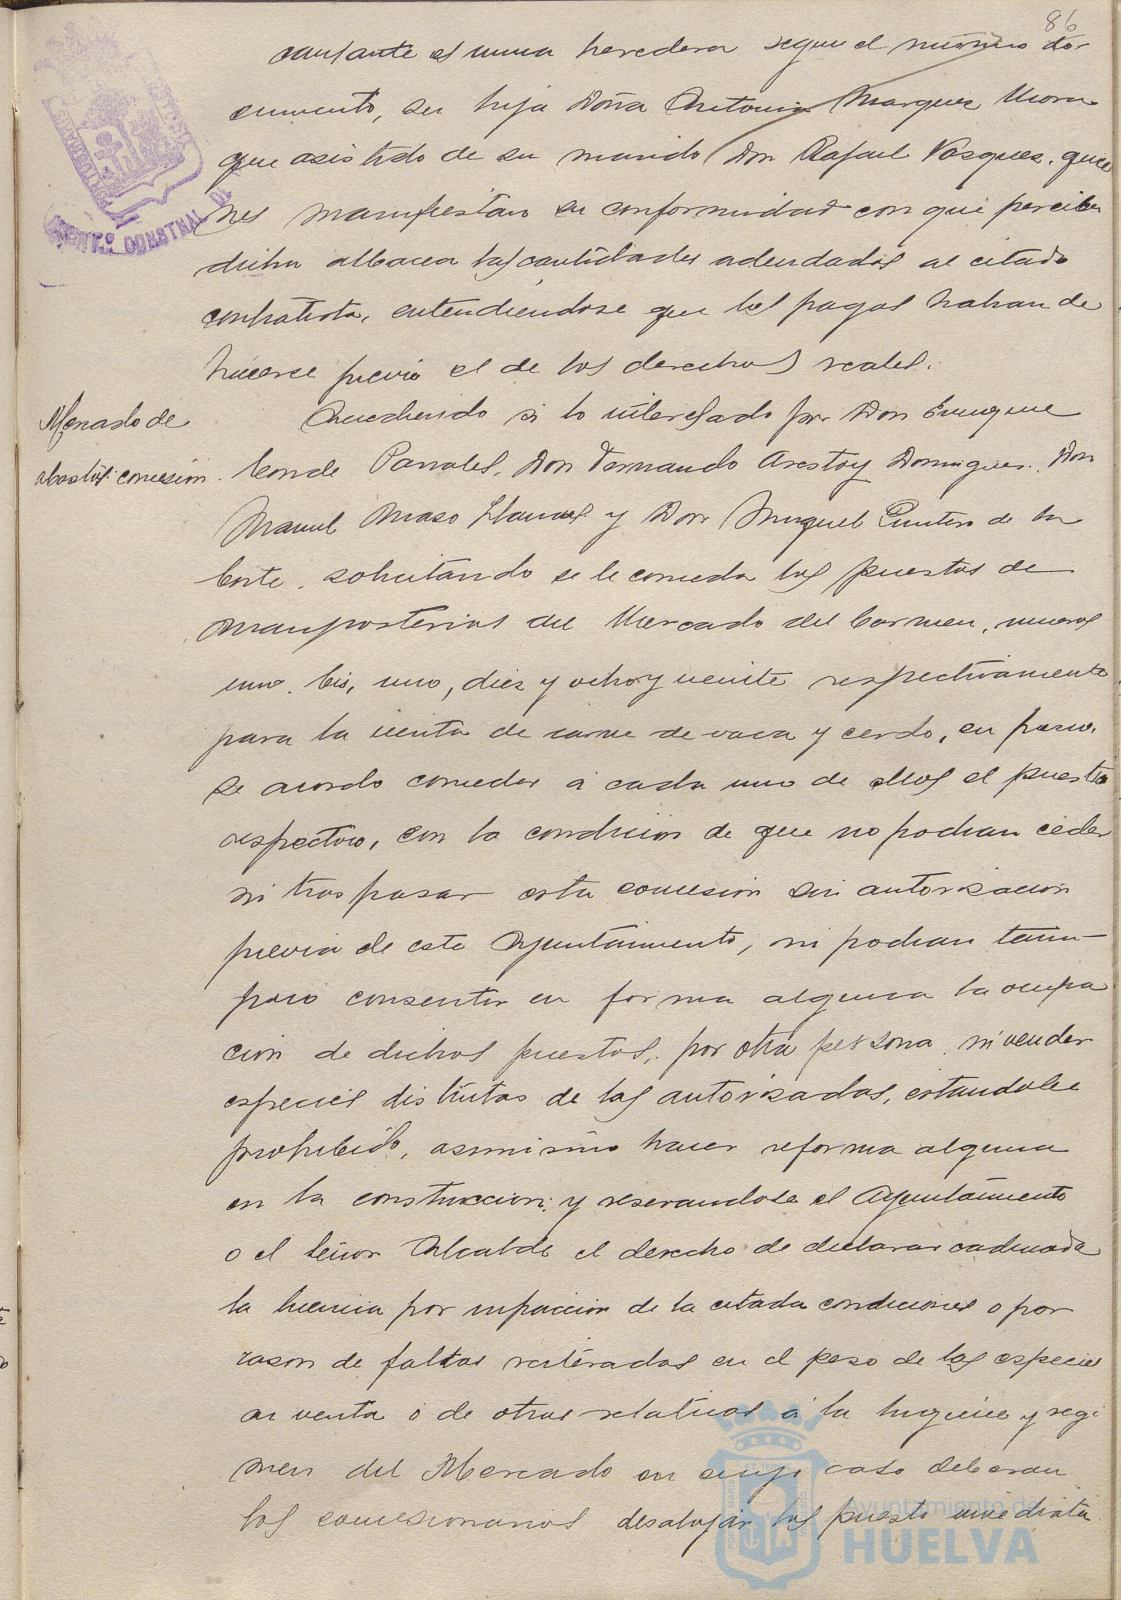 86
causante es unica heredera segun el mismo do-
cumento, su hija Doña Antonia Marquez Mora
que asistido de su marido Don Rafael Vasquez, quie
nes manifiestan su conformidad con que perciba
dicha albacea las cantidades adeudadas al citado
contratista, entendiendose que los pagos habran de
hacerse previo el de los derechos reales.
Mercado de
abastos: concesion.
Accediendo a lo interesado por Don Enrique
Conde Parrales, Don Fernando Arestoy Dominguez, Don
Manuel Maso Llanes y Don Miguel Quintero de la
Corte, solicitando se le conceda los puestos de
mamposterias del Mercado del Carmen, numeros
uno bis, uno, diez y ocho y veinte respectivamente
para la venta de carne de vaca y cerdo,
se acordo conceder á cada uno de ellos el puesto
respectivo, con la condicion de que no podran ceder
ni traspasar esta concesion sin autorizacion
previa de este Ayuntamiento, ni podran tam-
poco consentir en forma alguna la ocupa
cion de dichos puestos, por otra persona, ni vender
especies distintas de las autorizadas, estandole
prohibido, asimismo hacer reforma alguna
en la construccion; y reservandose el Ayuntamiento
o el Señor Alcalde el derecho de declarar caducada
la licencia por infraccion de la citada condiciones o por
razon de faltas reiteradas en el peso de las especies
en venta ó de otras relativas á la higiene y regi
men del Mercado en cuyo caso deberan
los concesionarios desalojar los puesto inmediata
Ayuntamiento de
HUELVA